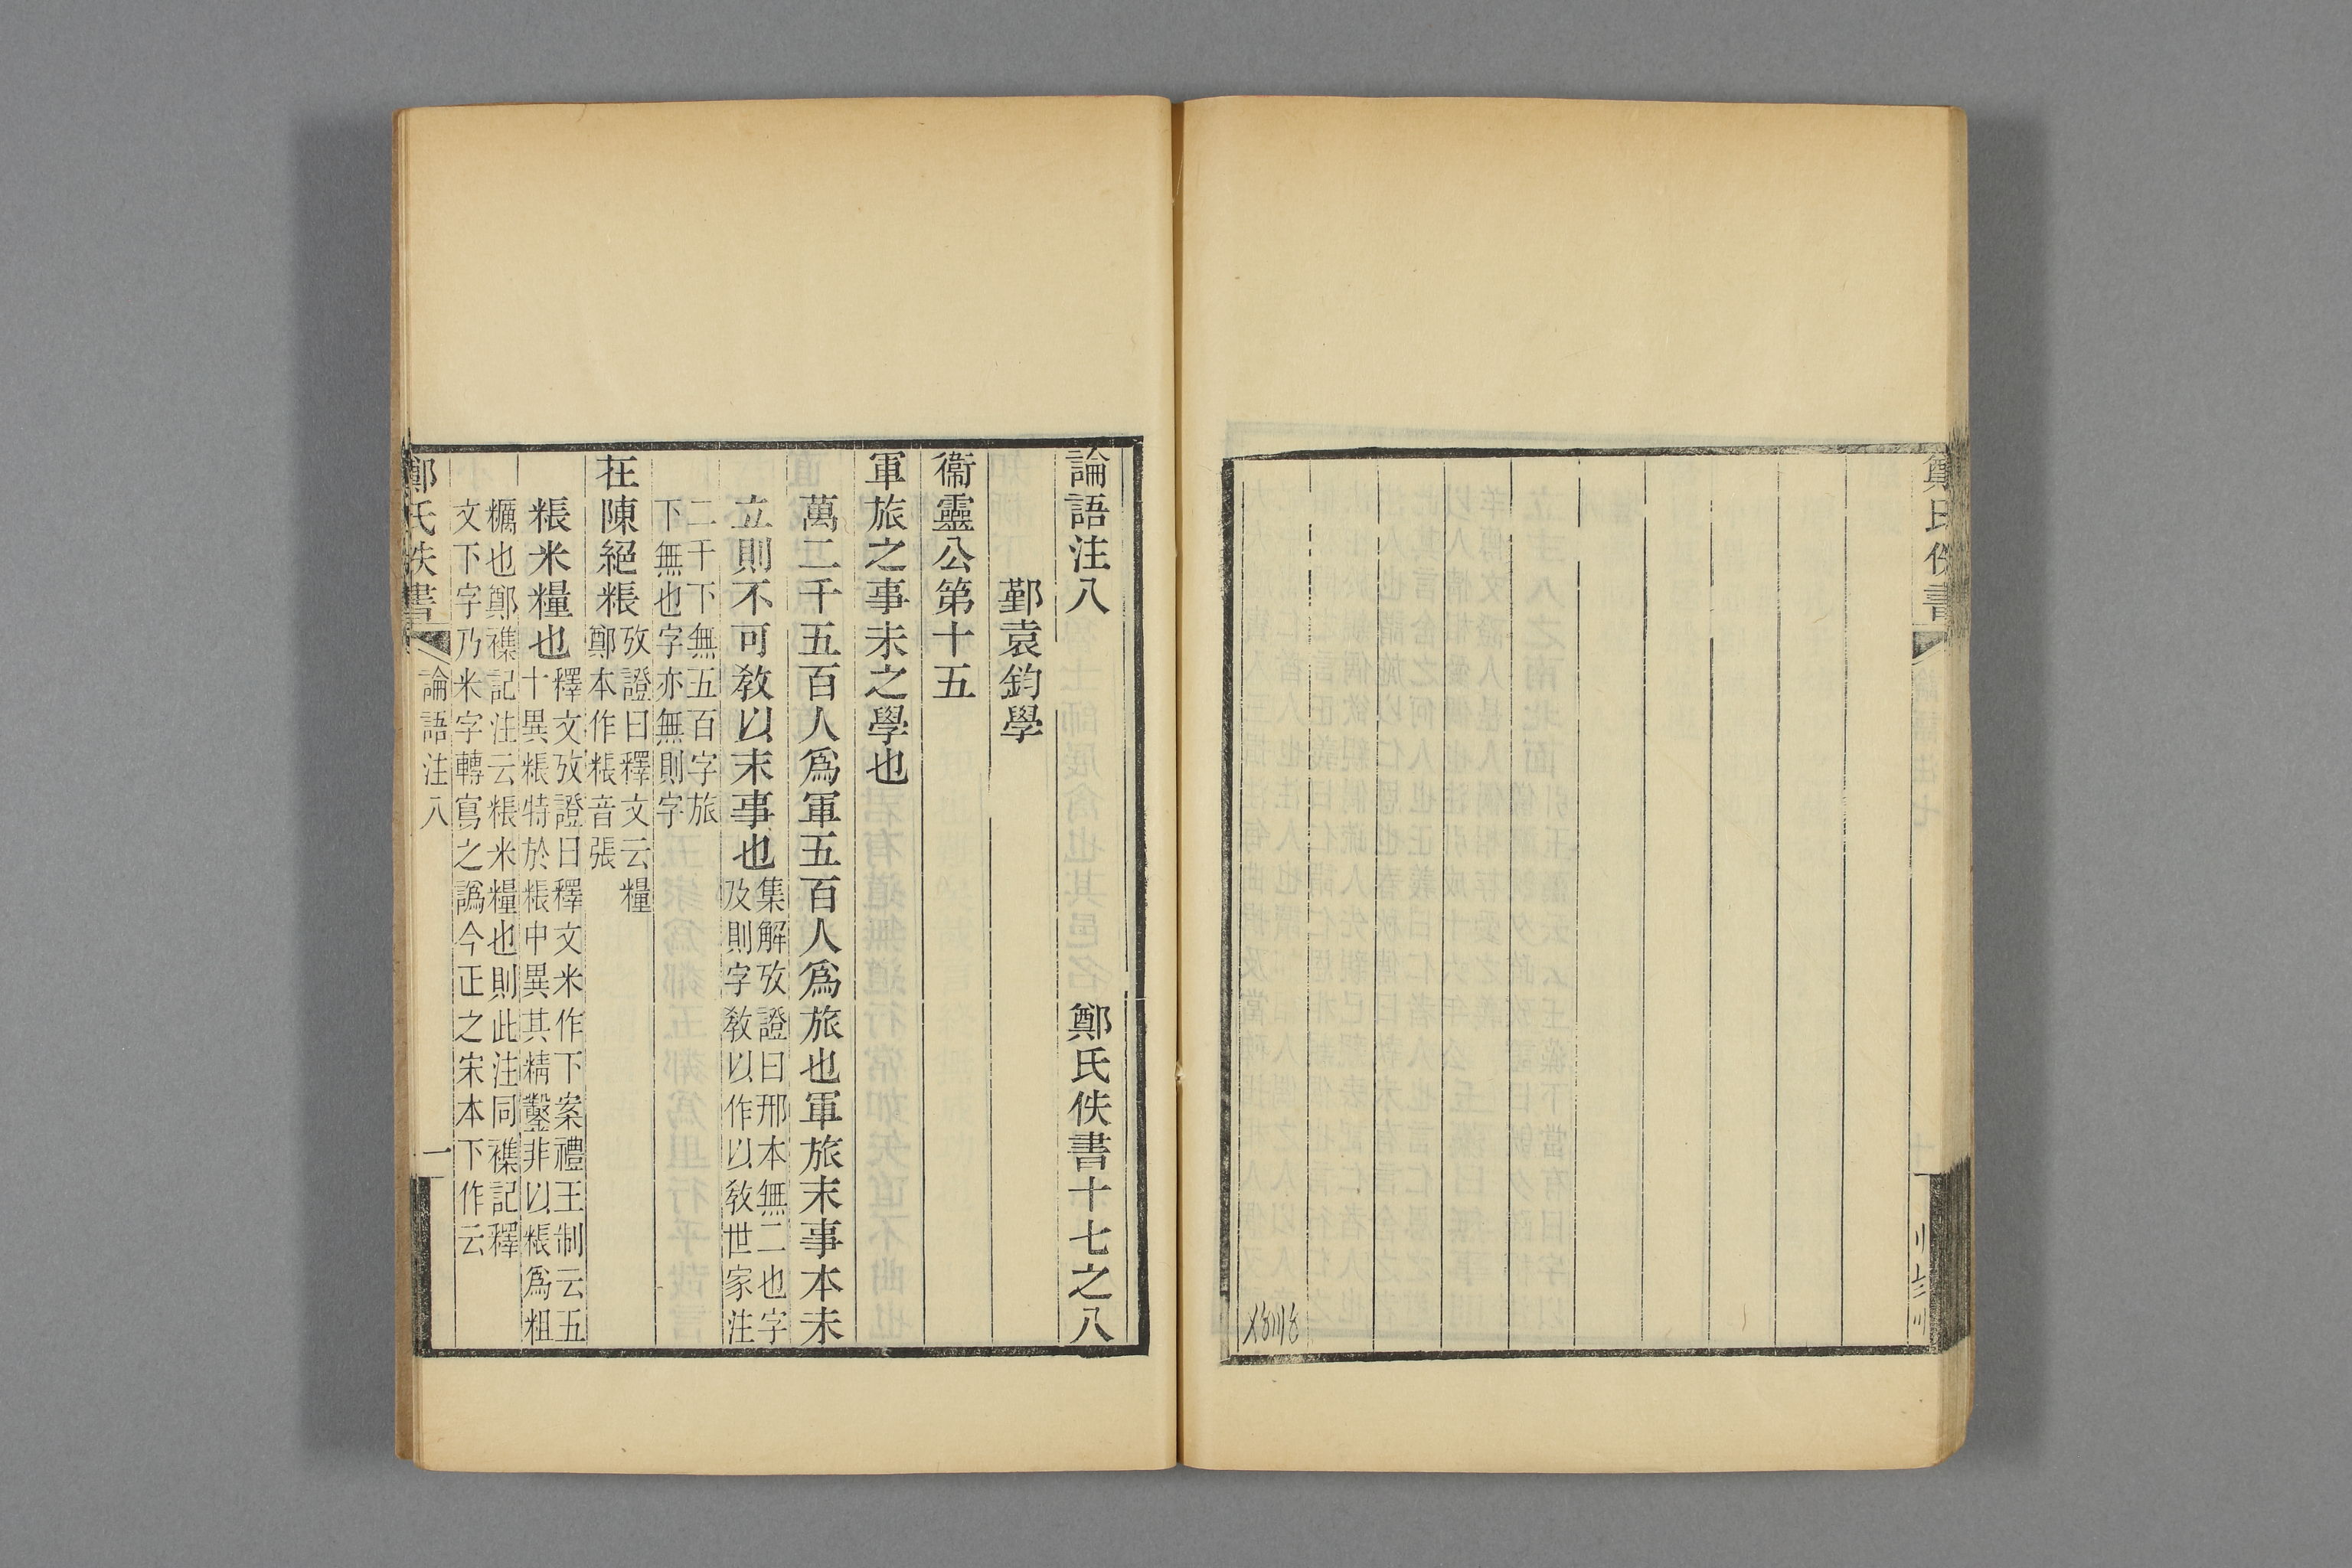 論語注八　鄭氏佚書十七之八
鄞袁鈞學
衞靈公第十五
軍旅之事未之學也
萬二千五百人爲軍五百人爲旅也軍旅末事本未
立則不可敎以末事也集解攷證曰邢本無二也字
及則字敎以作以敎世家注
二千下無五百字旅
下無也字亦無則字
在陳絕粻攷證曰釋文云糧
鄭本作粻音張
粻米糧也釋文攷證曰釋文米作下案禮王制云五
十異粻特於粻中異其精鑿非以粻爲粗
糲也鄭襍記注云粻米糧也則此注同襍記釋
文下字乃米字轉寫之譌今正之宋本下作云
鄭氏佚書
論語注八
一
鄭氏佚書